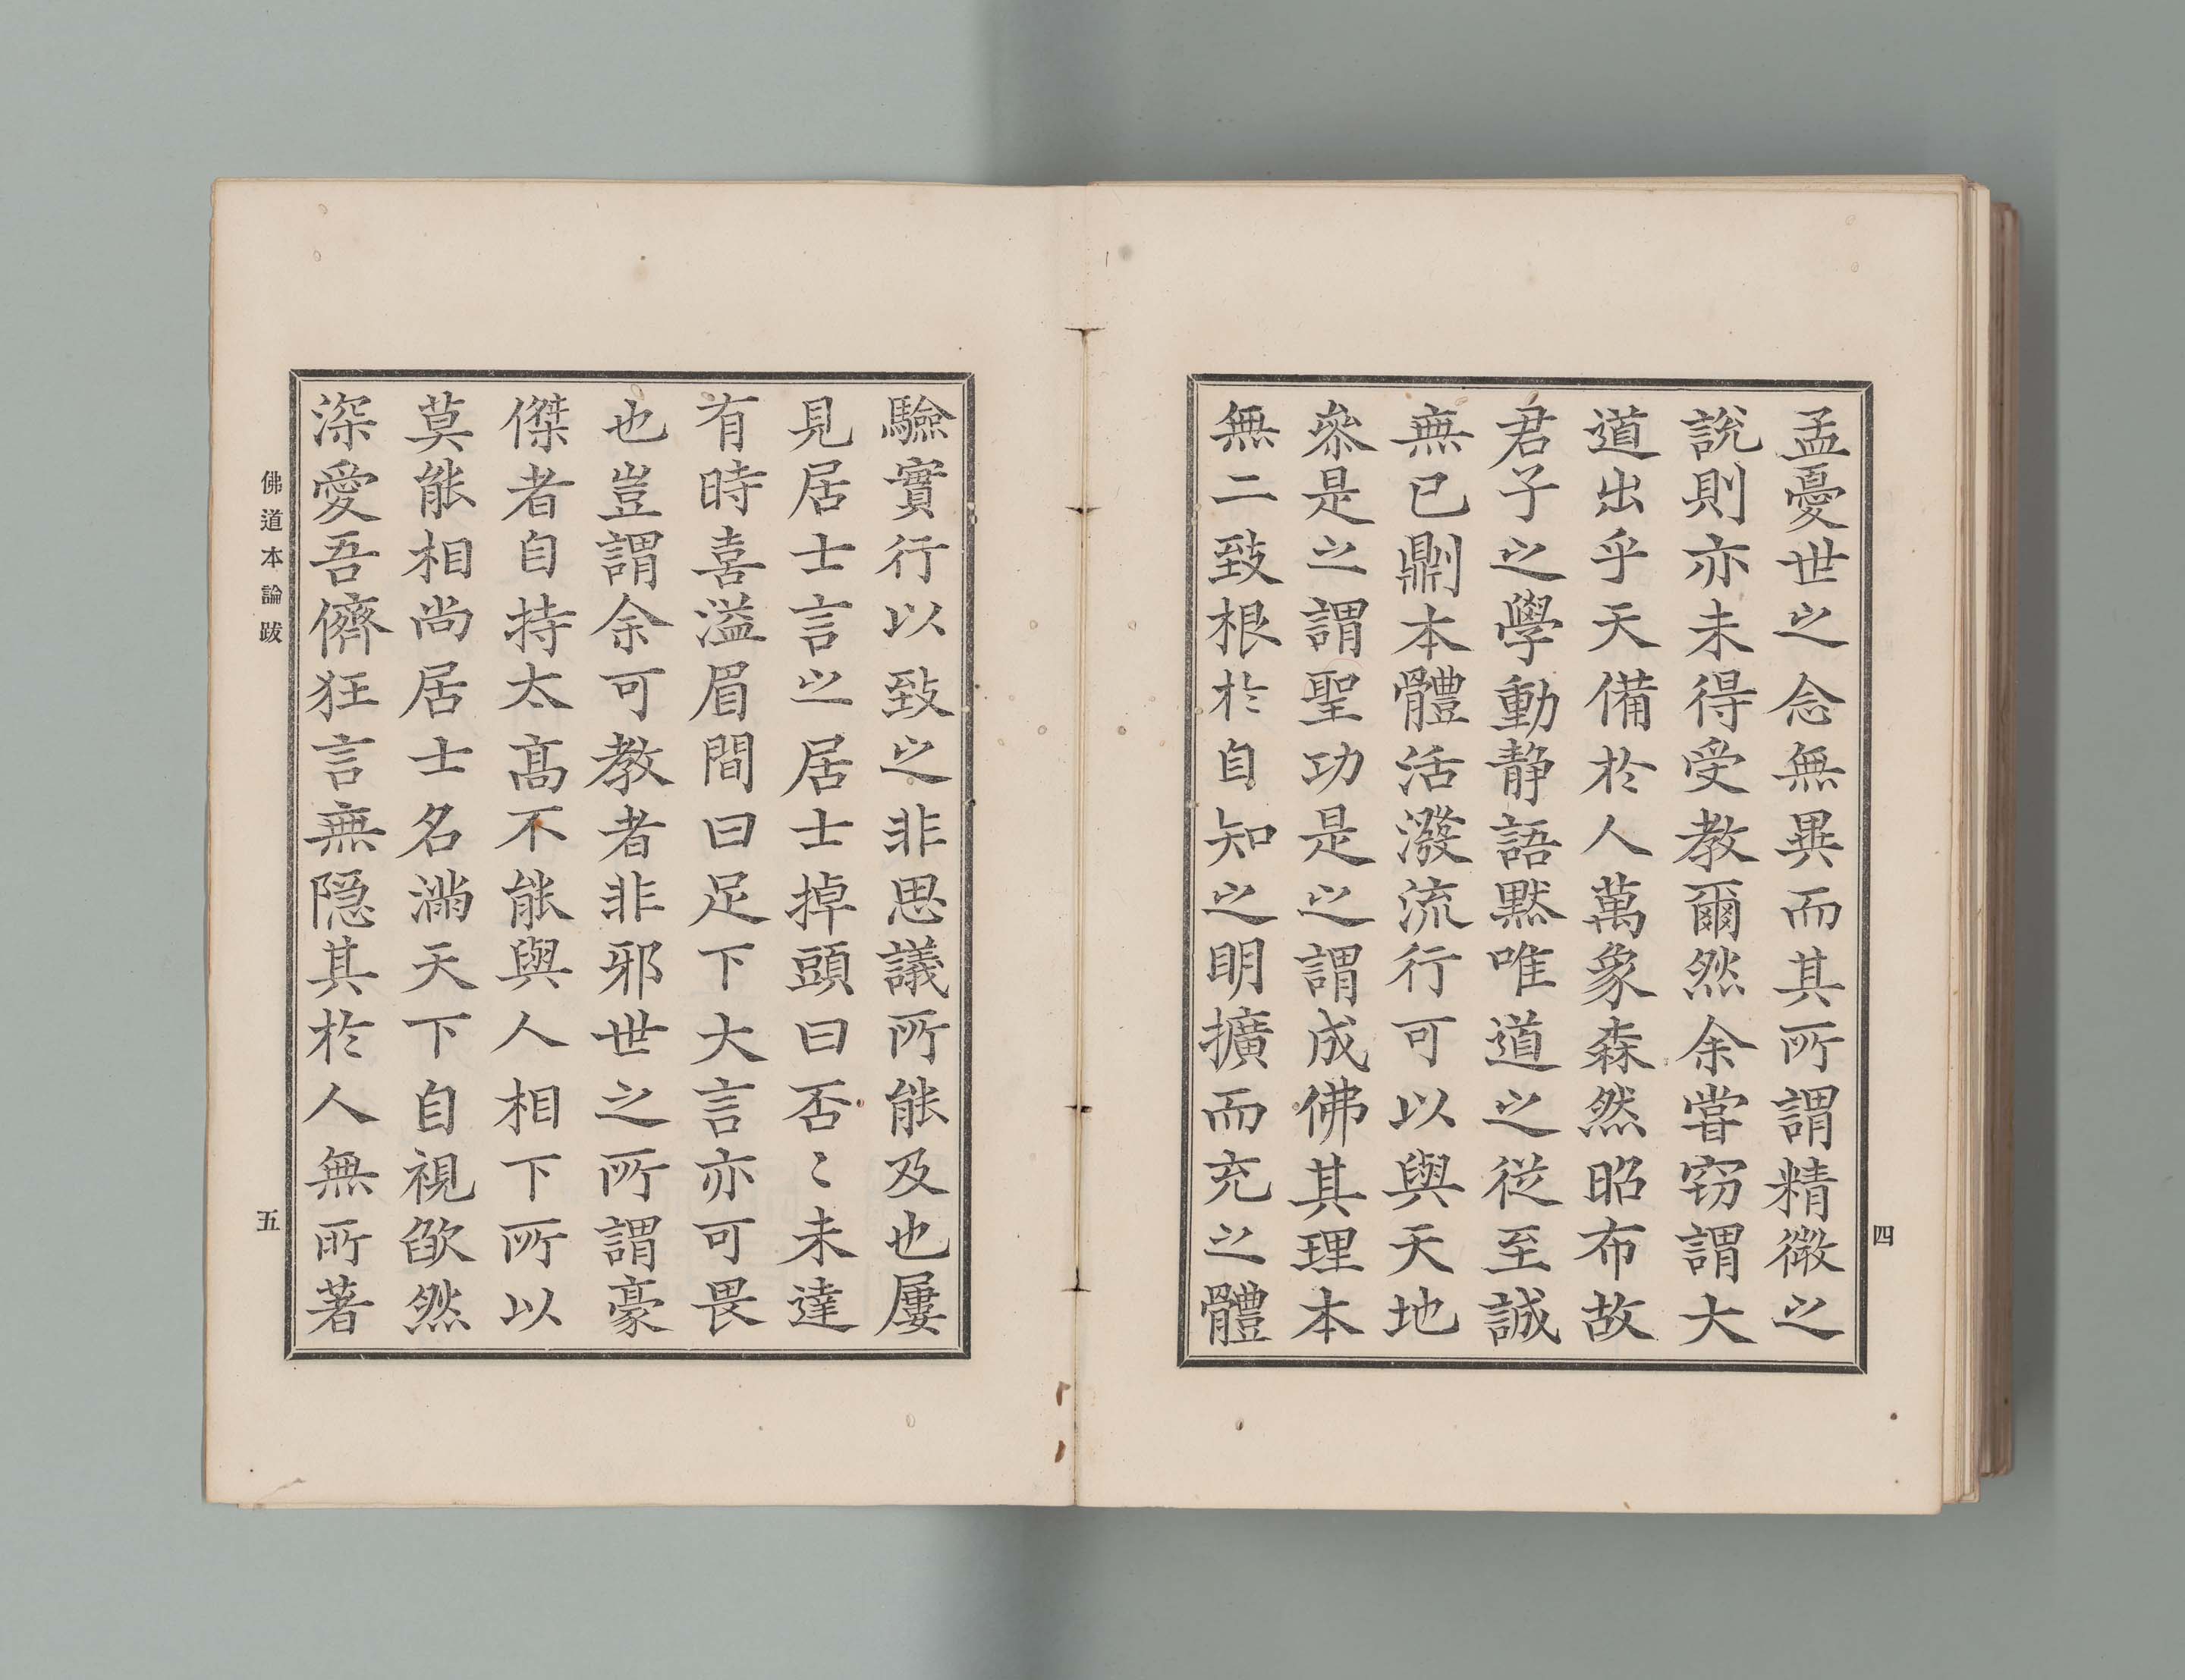 孟憂世之念無異而其所謂精微之
說則亦未得受教爾然余嘗窃謂大
道出乎天備於人萬象森然昭布故
君子之學動静語默唯道之従至誠
無已則本體活潑流行可以與天地
叅是之謂聖功是之謂成佛其理本
無二致根於自知之明擴而充之體
四
驗實行以致之非思議所能及也屢
見居士言之居士掉頭曰否〻未達
有時喜溢眉間曰足下大言亦可畏
也豈謂余可教者非邪世之所謂豪
傑者自持太高不能與人相下所以
莫能相尚居士名滿天下自視欿然
深愛吾儕狂言無隠其於人無所著
佛道本論跋
五